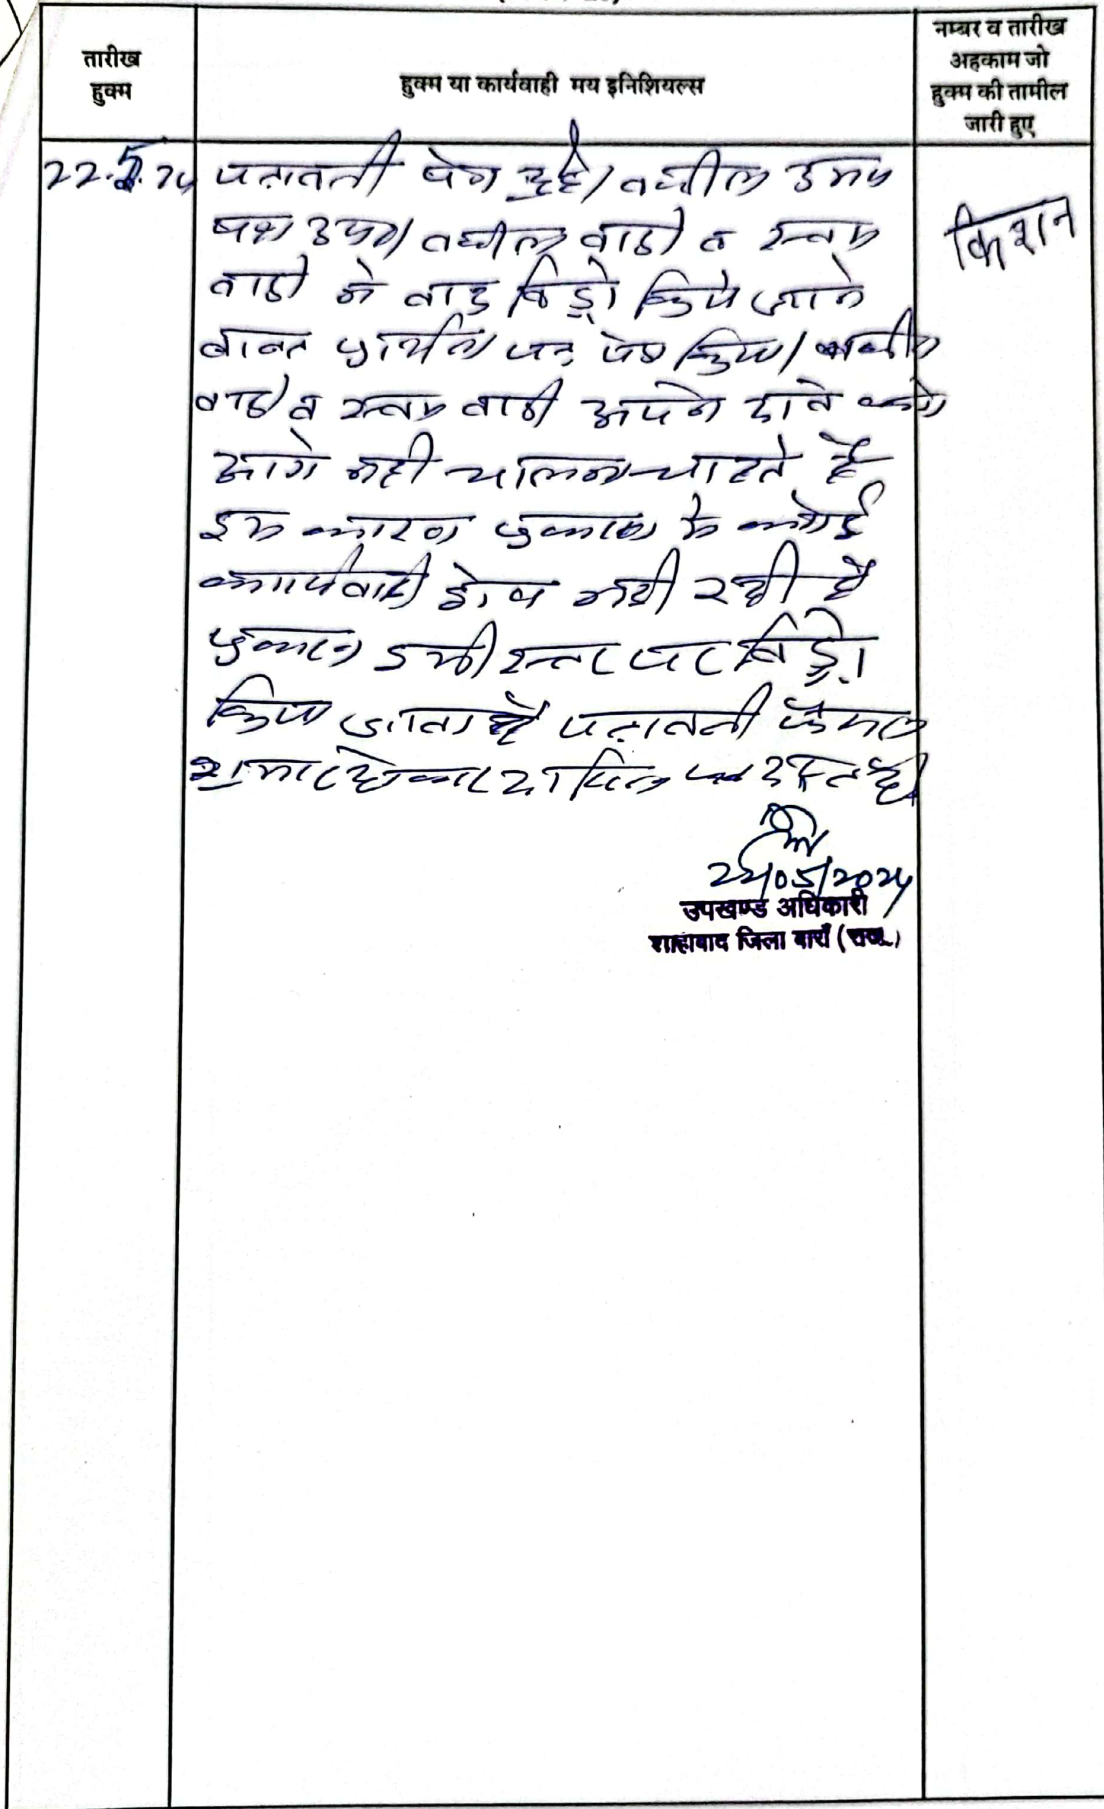 तारीख
हुक्म
हुक्म या कार्यवाही मय इनिशियल्स
नम्बर व तारीख
अहकाम जो
हुक्म की तामील
जारी हुए
22.5.24 पत्रावली पेश हुई। वकील उभय
पक्ष उप०। वकील वादी व स्वयं
वादी ने वाद विड्रो किये जाने
बाबत प्रार्थना पत्र पेश किया। वकील
वादी व स्वयं वादी अपने दावे को
आगे नही चलाना चाहते है
इस कारण प्रकरण में कोई
कार्यवाही शेष नही रही है
प्रकरण इसी स्तर पर विड्रो
किया जाता है पत्रावली फैसल
शुमार होकर दाखिल दफ्तर हो
किशन
22/05/2024
उपखण्ड अधिकारी
शाहाबाद जिला बारॉं (राज.)